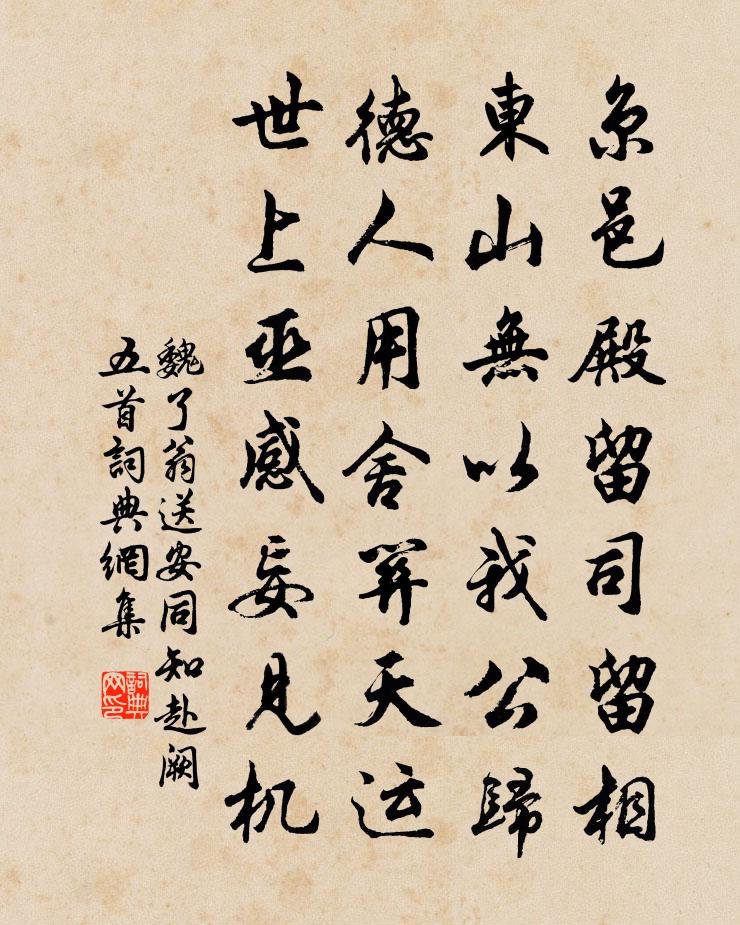 京邑殿留司留相
東山無以我公歸
德人用舍筭天运
世上巫感妄見机
魏了翁送安同知赴阙
五首詞典網集
詞典网印